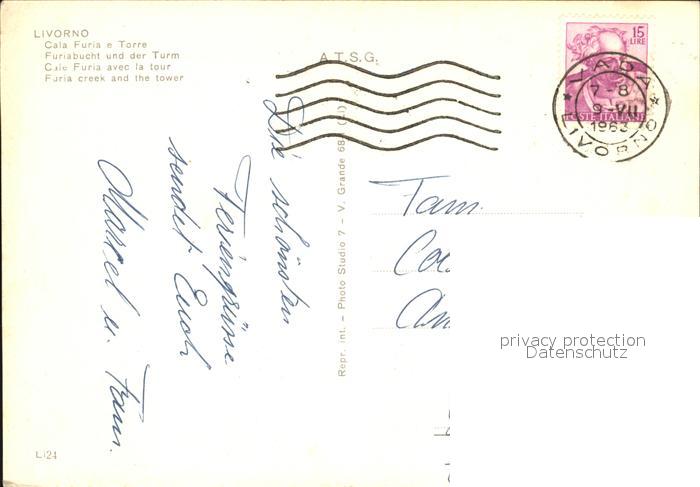 LIVORNO
Cala Furia e Torre
Furiabucht und der Turm
Cale Furia avec la tour
Furia creek and the tower
A.T.S.G.
15
LIRE
POSTE ITALIANE
VADA
7-8
9-VII
1963
LIVORNO
Die schönsten
Feriengrüsse
sendet Euch
Marcel u. Fam.
Repr. int. - Photo Studio 7 - V. Grande 68
Fam.
privacy protection
Datenschutz
L124